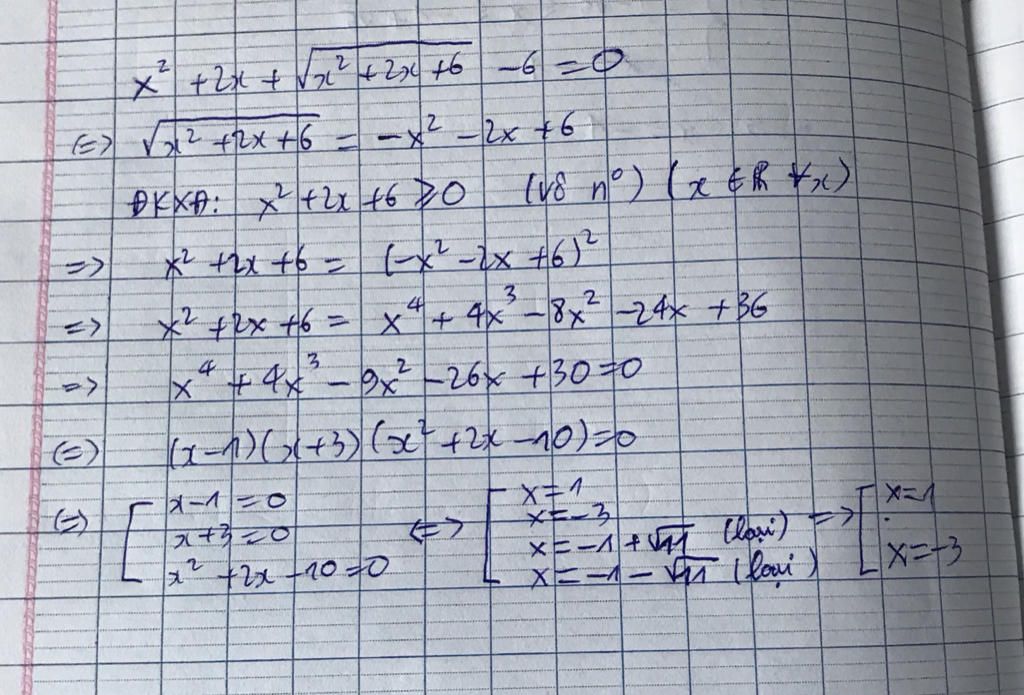 x² + 2x + √(x² + 2x + 6) - 6 = 0
(=) √(x² + 2x + 6) = -x² - 2x + 6
ĐKXĐ: x² + 2x + 6 ≥ 0 (V8 n⁰) (x ∈ ℝ ∀x)
=> x² + 2x + 6 = (-x² - 2x + 6)²
=> x² + 2x + 6 = x⁴ + 4x³ - 8x² - 24x + 36
=> x⁴ + 4x³ - 9x² - 26x + 30 = 0
(=) (x-1)(x+3)(x² + 2x - 10) = 0
(=) [ x - 1 = 0 <=> [ x = 1 => [ x = 1
x + 3 = 0 x = -3
x = -1 + √11 (loại) x = -3
x² + 2x - 10 = 0 x = -1 - √11 (loại)